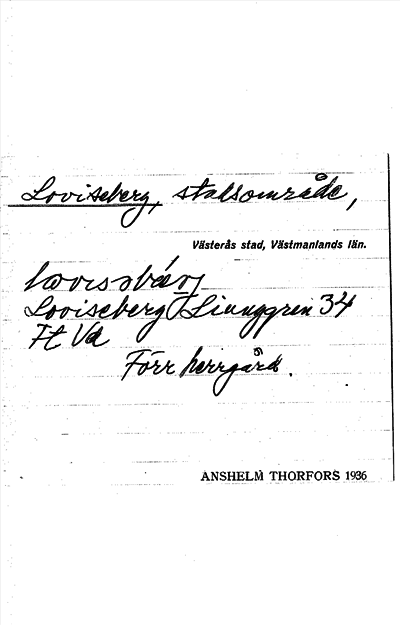 Loviseberg, stadsområde,
Västerås stad, Västmanlands län.
Loviseberg Ljunggren 34
Ht Va
Förr herrgård.
ANSHELM THORFORS 1936